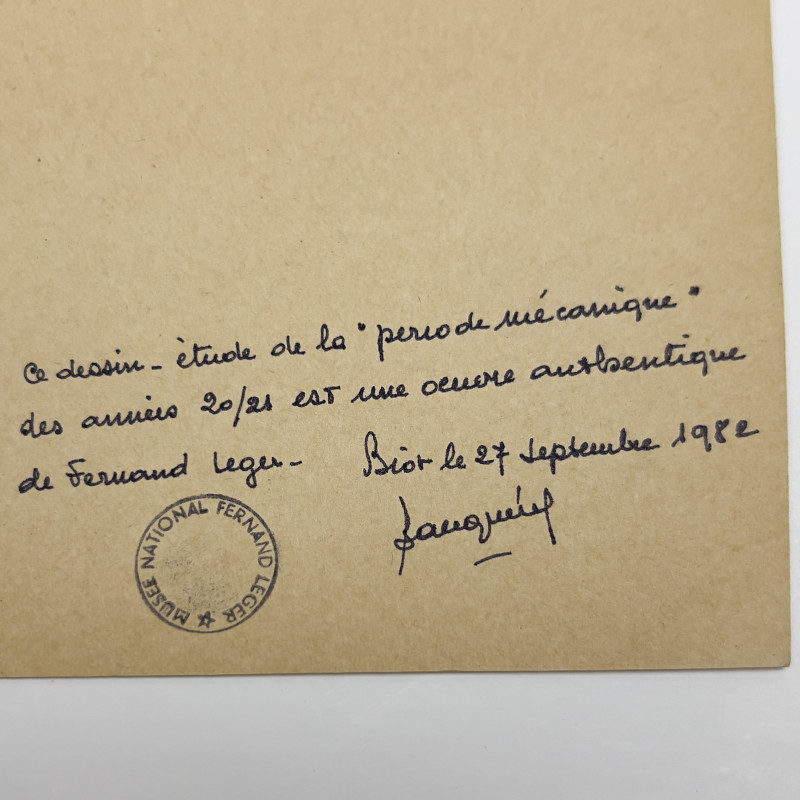 Ce dessin - ètude de la "periode mécanique"
des années 20/21 est une oeuvre authentique
de Fernand Leger - Biot le 27 septembre 1982
MUSEE NATIONAL FERNAND LEGER